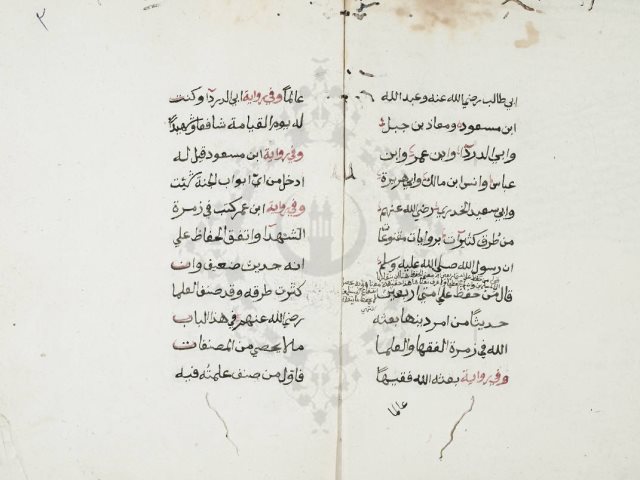 ٣
ابي طالب رضي الله عنه وعبد الله
ابن مسعود ومعاذ بن جبل
وابي الدردآ وابن عمر وابن
عباس وانس ابن مالك وابي هريرة
وابي سعيد الخدري رضي الله عنهم
من طرق كثيرات بروايات متنوعات
ان رسول الله صلي الله عليه وسلم
قال من حفظ علي امتي اربعين
حديثا من امر دينها بعثه
الله في زمرة الفقها والعلما
وفي رواية بعثه الله فقيها
عالما
عالما وفي رواية ابي الدردآ وكنت
له يوم القيامة شافعا وشهيدا
وفي رواية ابن مسعود قيل له
ادخل من اي ابواب الجنة شئت
وفي رواية ابن عمر كتب في زمرة
الشهدا واتفق الحفاظ علي
انه حديث ضعيف وان
كثرت طرقه وقد صنف العلما
رضي الله عنهم في هذا الباب
ما لا يحصي من المصنفات
فاول من صنف علمته فيه